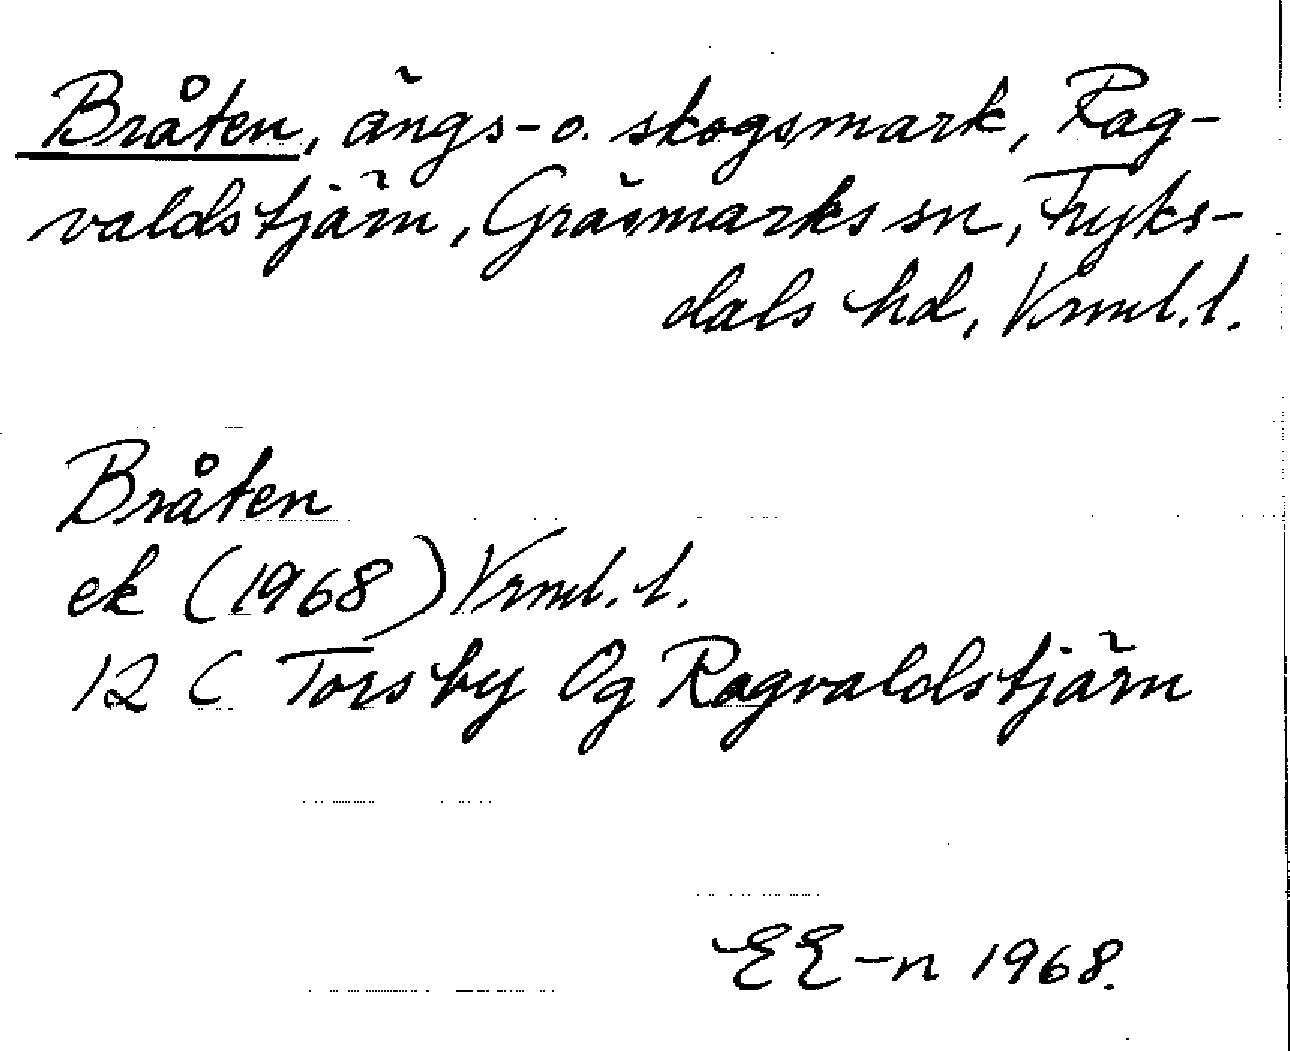 Bråten, ängs- o. skogsmark, Rag-
valdstjärn, Gräsmarks sn, Fryks-
dals hd, Vrml. l.
Bråten
ek (1968) Vrml. l.
12 C Torsby Og Ragvaldstjärn
EE-n 1968.